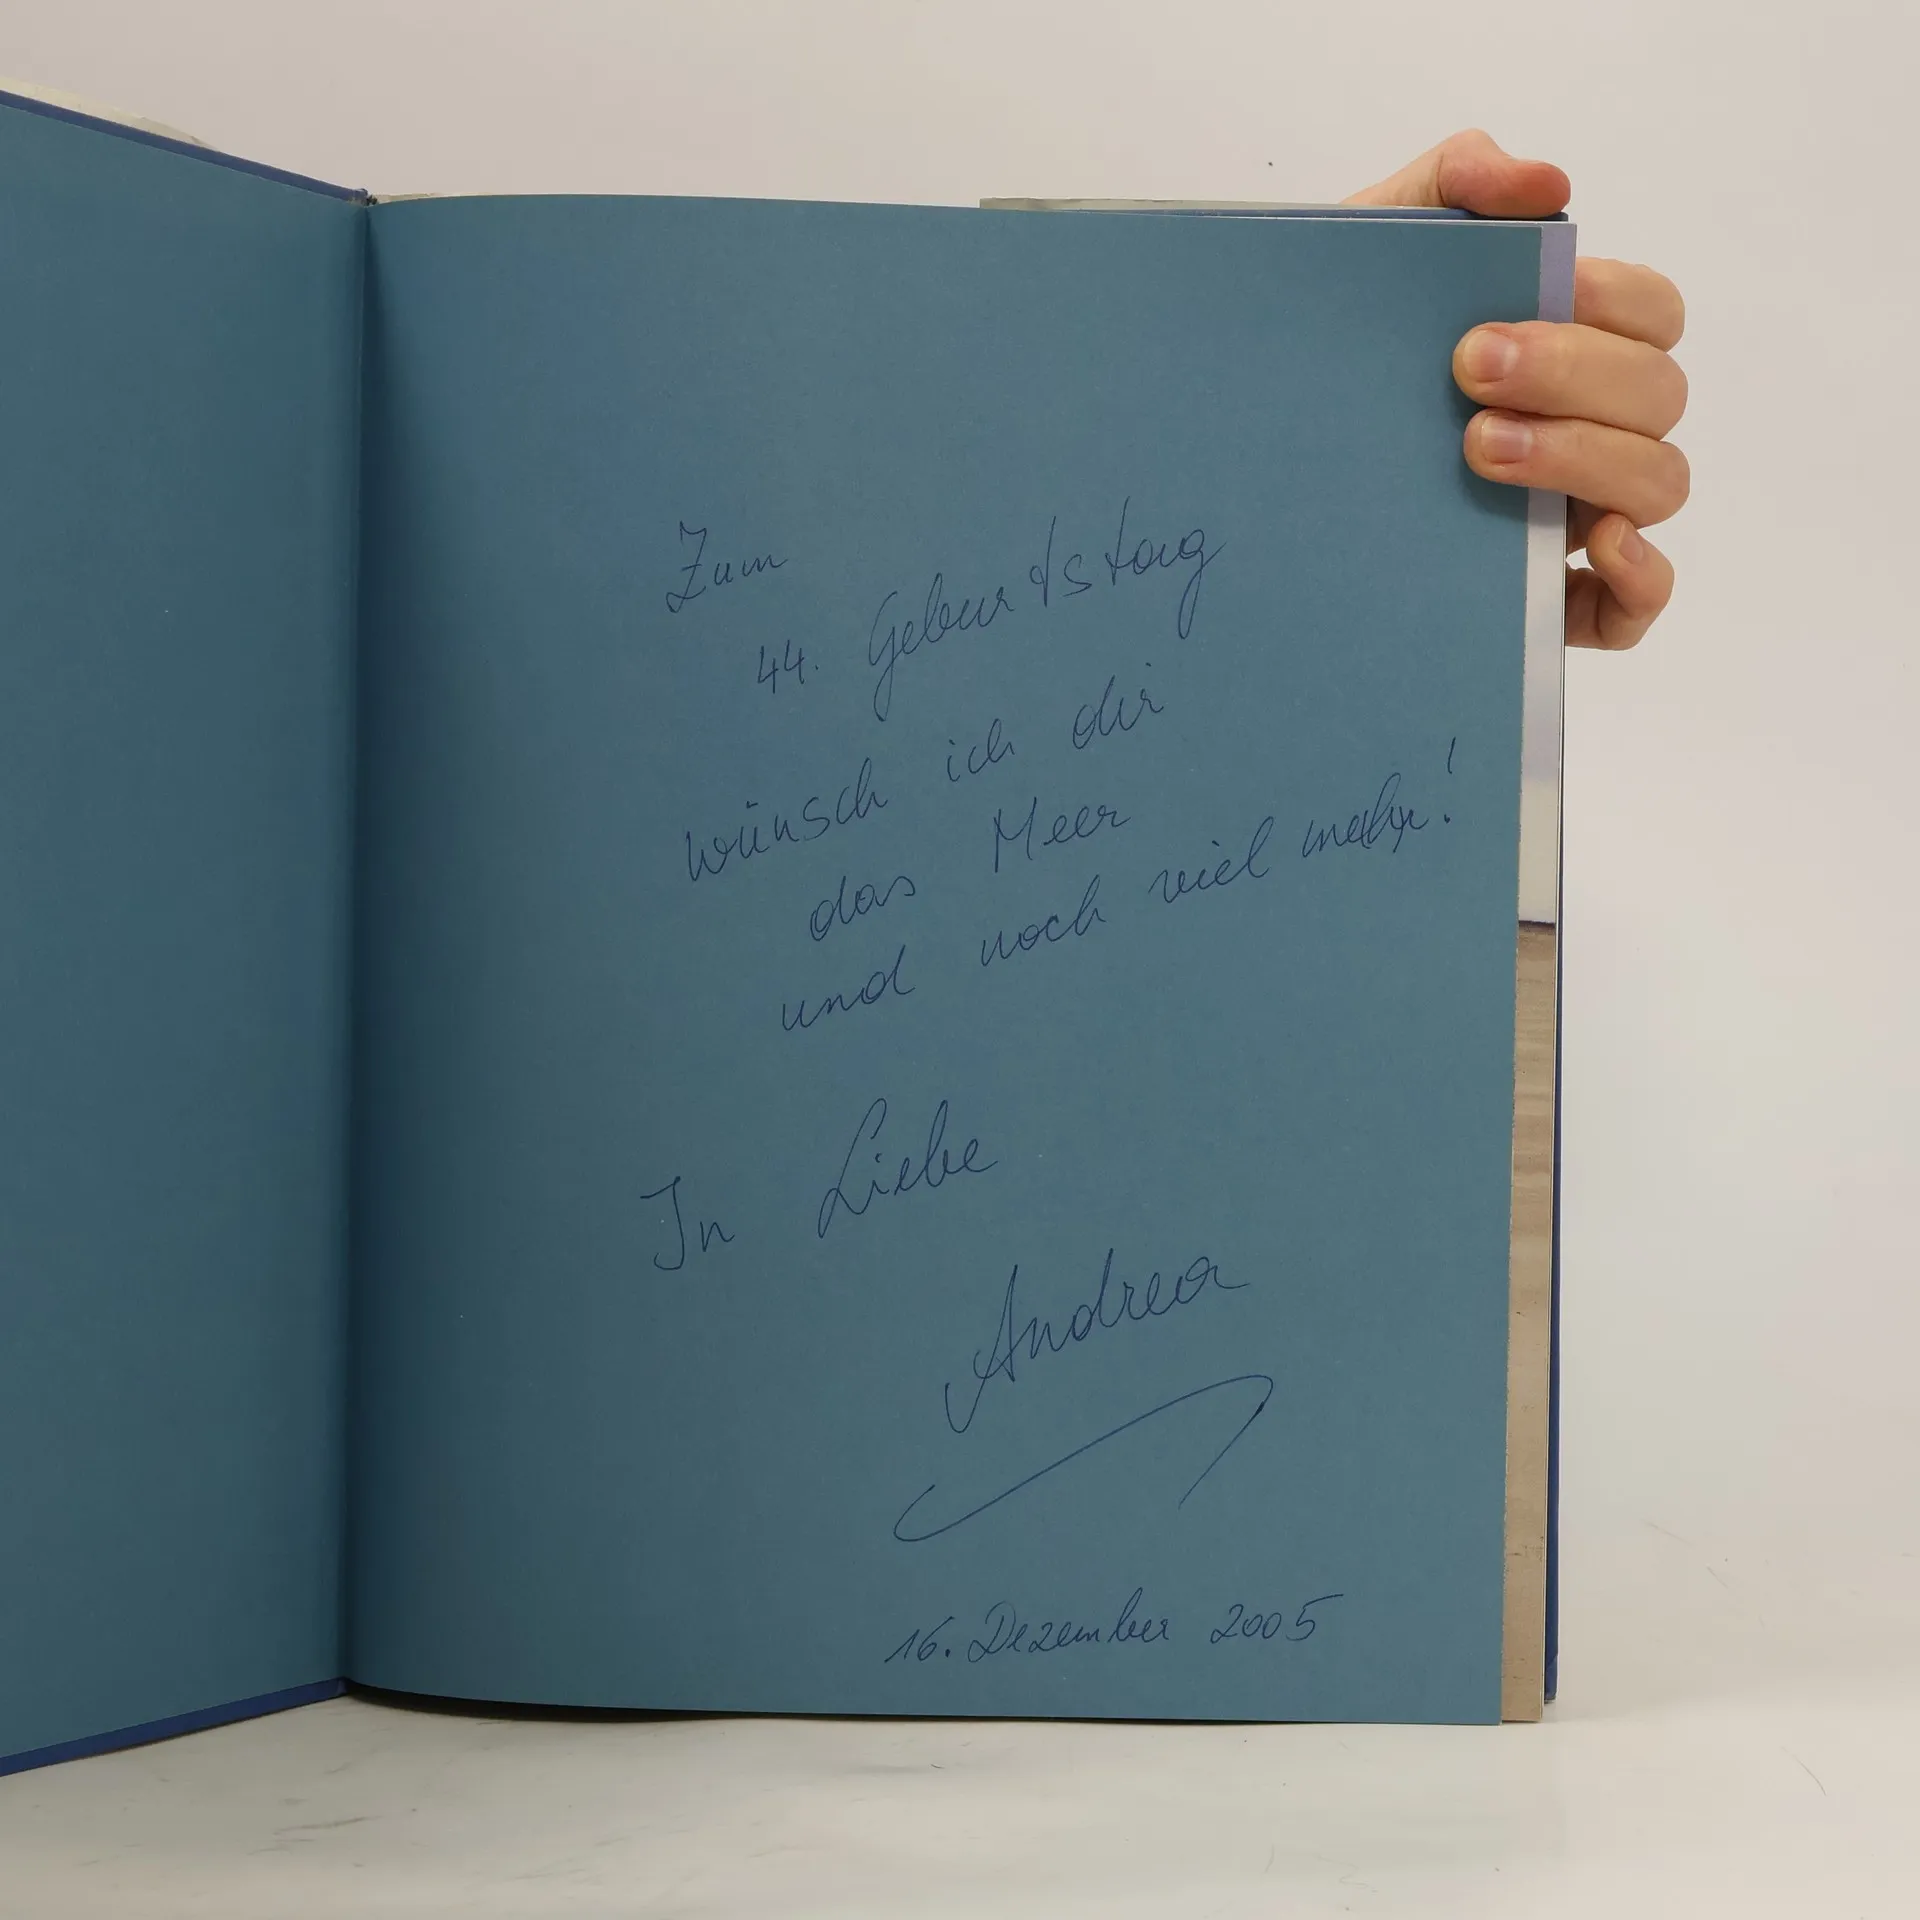 Zum
44. Geburtstag
wünsch ich dir
das Meer
und noch viel mehr!
In Liebe
Andrea
16. Dezember 2005